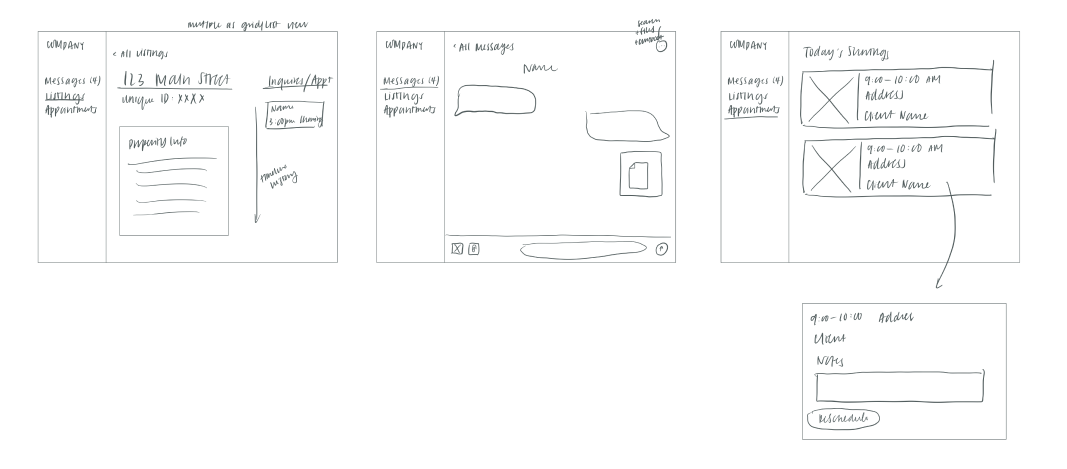 multiple as grid/list view
COMPANY
Messages (4)
Listings
Appointments
< All Listings
123 Main Street
Unique ID: XXXX
Property Info
Inquiries/Appt
Name
3:00pm Showing
timeline
history
COMPANY
Messages (4)
Listings
Appointments
< All Messages
Name
search
+ files/
COMPANY
Messages (4)
Listings
Appointments
Today's Showings
9:00 - 10:00 AM
Address
Client Name
9:00 - 10:00 AM
Address
Client Name
9:00 - 10:00 Address
Client
Notes
Reschedule